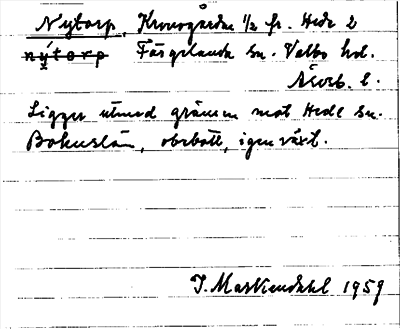 Nytorp, Kronogården 1/2 fr. Hede 2
nýtorp Färgelanda sn. Valbo hd.
Älvsb. l.
Ligger utmed gränsen mot Hede sn.
Bohuslän, obebott, igenväxt.
J. Markendahl 1959